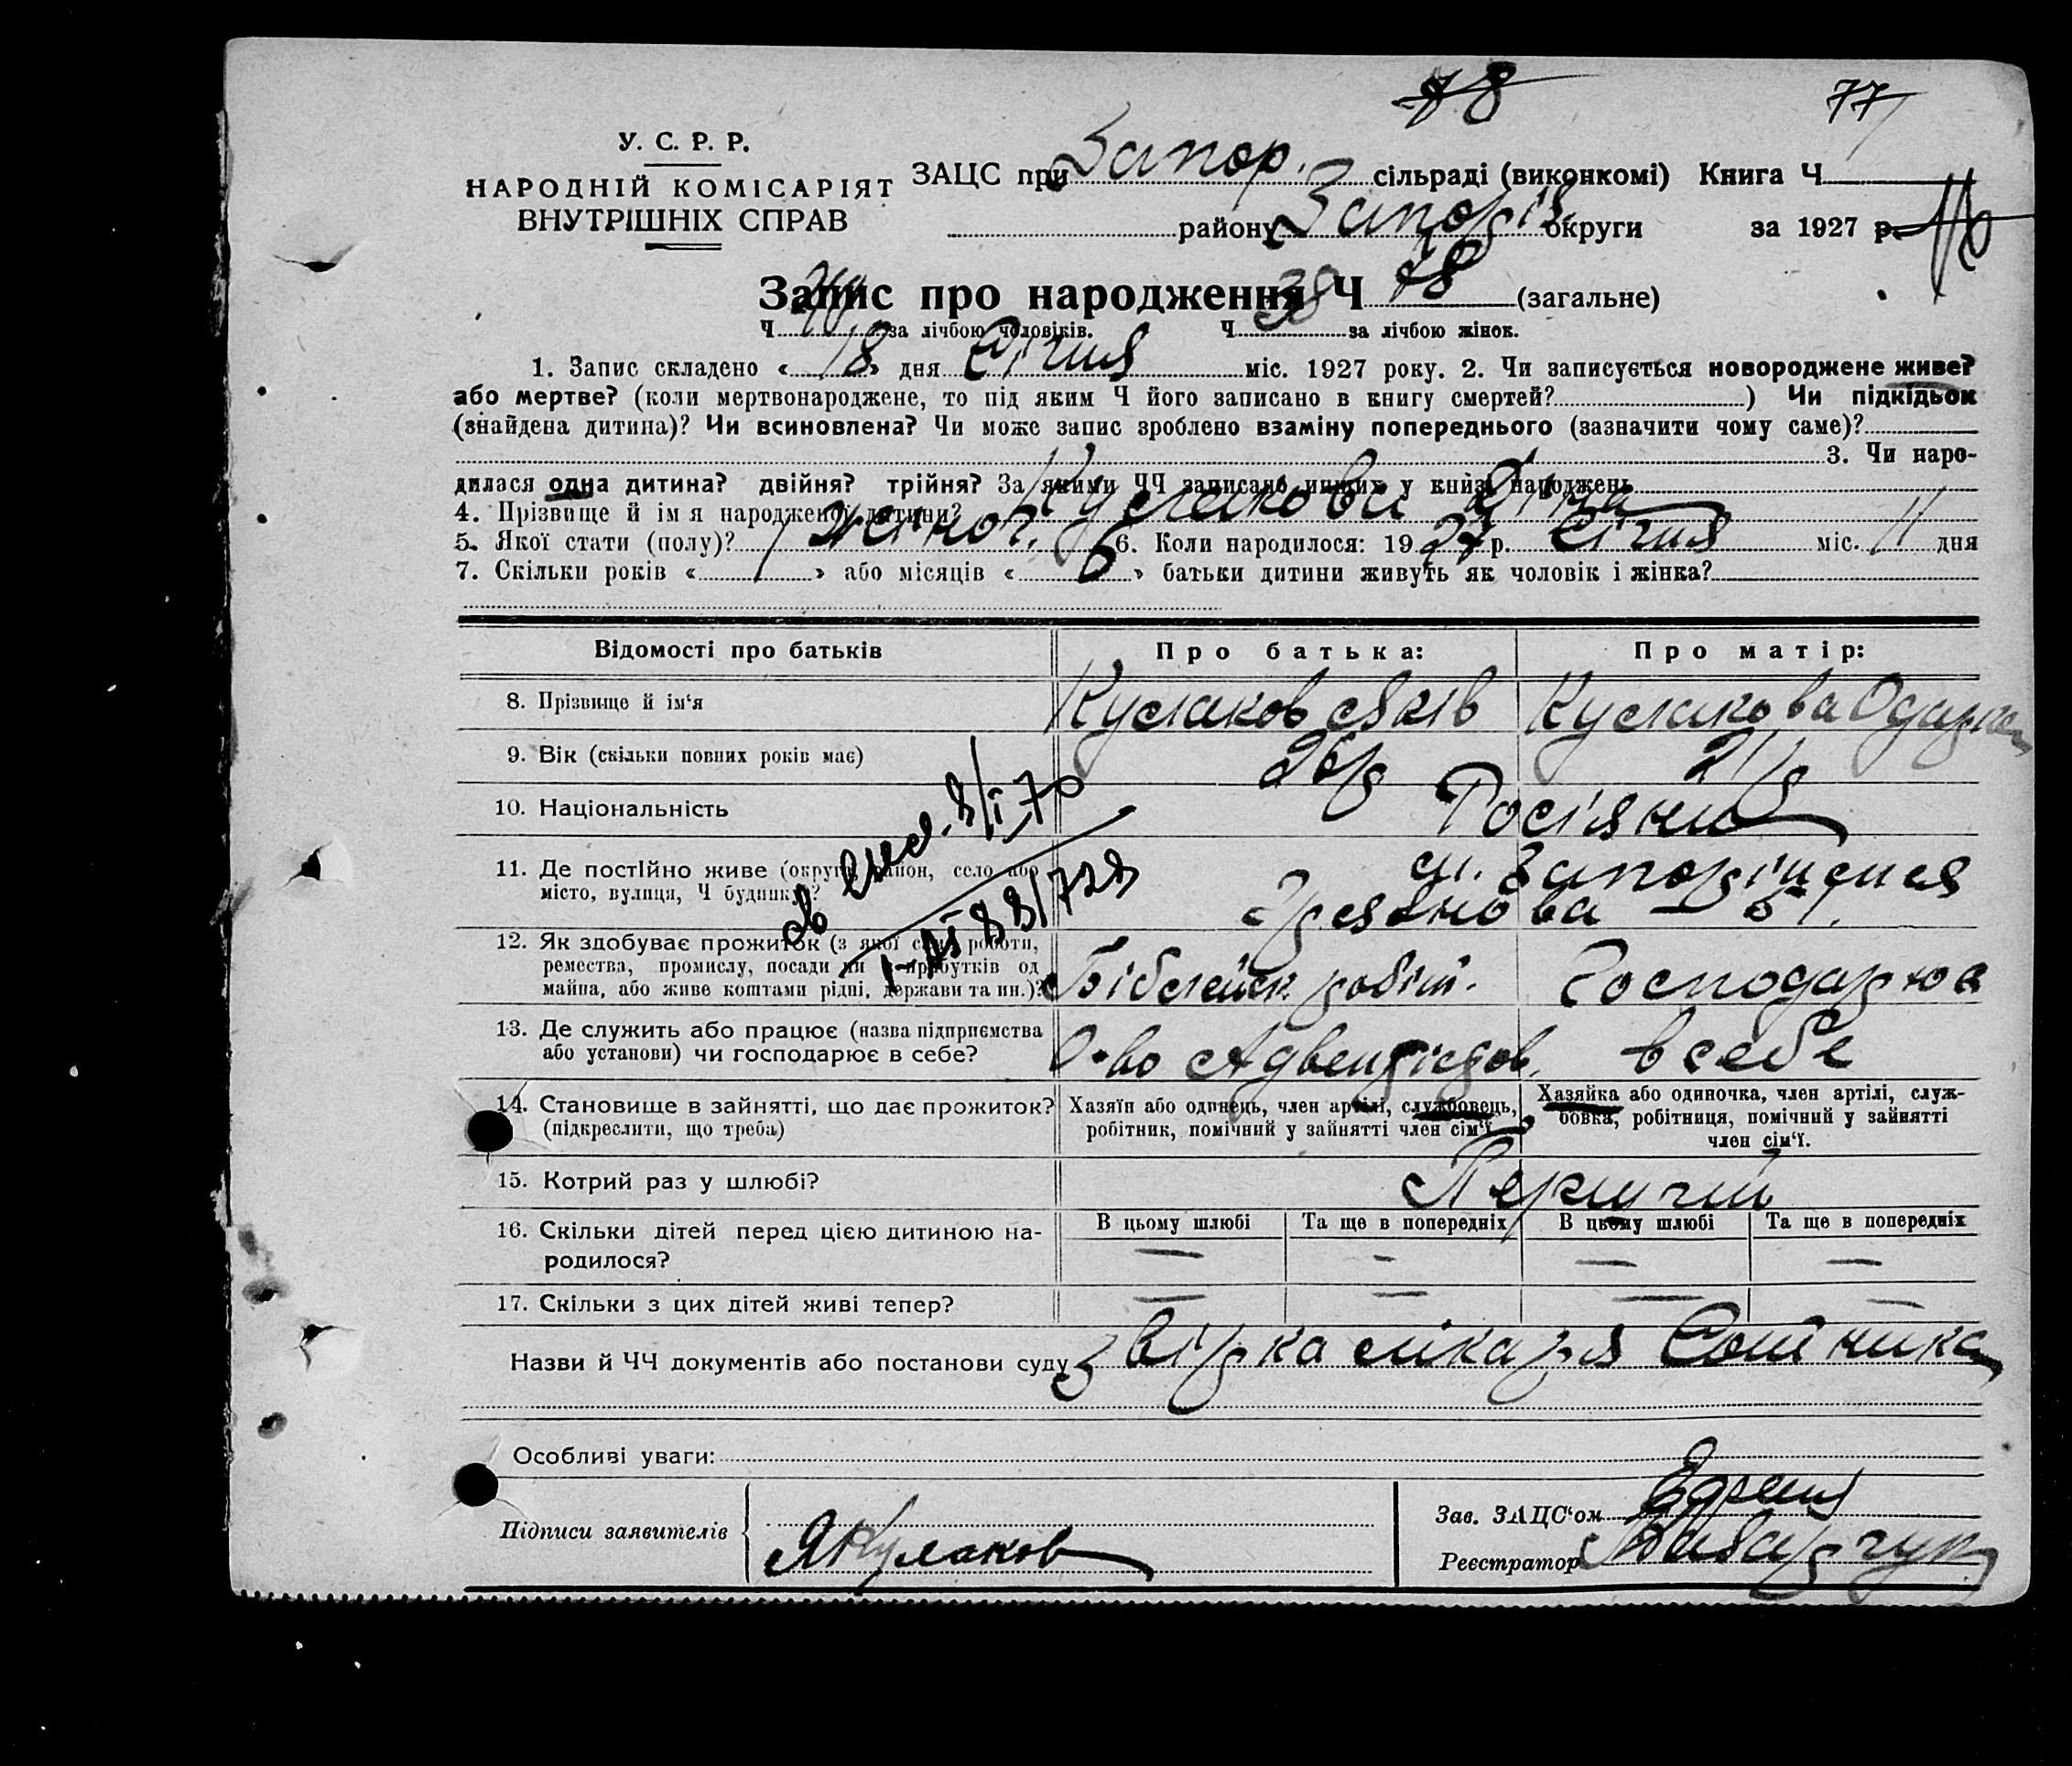 78 77
У. С. Р. Р.
НАРОДНІЙ КОМІСАРІЯТ
ВНУТРІШНІХ СПРАВ
ЗАЦС при Запор. сільраді (виконкомі) Книга Ч
району Запоріз. округи за 1927 р.
Запис про народження Ч 78 (загальне)
Ч 40 за лічбою чоловіків. Ч 38 за лічбою жінок.
1. Запис складено « 18 » дня Січня міс. 1927 року. 2. Чи записується новороджене живе?
або мертве? (коли мертвонароджене, то під яким Ч його записано в книгу смертей? ) Чи підкідьок
(знайдена дитина)? Чи всиновлена? Чи може запис зроблено взаміну попереднього (зазначити чому саме)?
3. Чи наро-
дилася одна дитина? двійня? трійня? За якими ЧЧ записано инших у книзі народжень
4. Прізвище й ім я народженої дитини? Кулакова
5. Якої стати (полу)? жіноч. 6. Коли народилося: 19 27 р. Січня міс. 11 дня
7. Скільки років « 1 » або місяців « 6 » батьки дитини живуть як чоловік і жінка?
Відомості про батьків Про батька: Про матір:
8. Прізвище й ім'я Кулаков Яків Кулакова Одарка
9. Вік (скільки повних років має) 26 р 21 р
10. Національність Росіяни
11. Де постійно живе (округа, район, село або
місто, вулиця, Ч будинку)?
м. Запоріжжя
12. Як здобуває прожиток (з якої саме роботи,
ремества, промислу, посади чи з прибутків од
майна, або живе коштами рідні, держави та ин.)?
Біблейск робіт. Господарює
13. Де служить або працює (назва підприємства
або установи) чи господарює в себе?
О-во Адвентістов. в себе
14. Становище в зайнятті, що дає прожиток?
(підкреслити, що треба)
Хазяїн або одинець, член артілі, службовець,
робітник, помічний у зайнятті член сім'ї.
Хазяйка або одиночка, член артілі, служ-
бовка, робітниця, помічний у зайнятті
член сім'ї.
15. Котрий раз у шлюбі? Перший
16. Скільки дітей перед цією дитиною на-
родилося?
В цьому шлюбі Та ще в попередніх В цьому шлюбі Та ще в попередніх
— — — —
17. Скільки з цих дітей живі тепер? — — — —
Назви й ЧЧ документів або постанови суду Звірка лікаря Сотника
Особливі уваги:
Підписи заявителів ЯКулаков
Зав. ЗАЦС'ом
Реєстратор